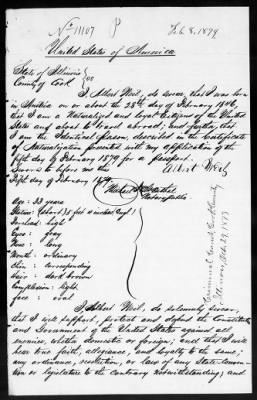 No 11107
Feb 8, 1879
United States of America
State of Illinois
County of Cook } ss
I, Albert Weil, do swear, that I was born
in on or about the 28th day of February 1846,
that I am a Naturalized and loyal Citizen of the United
States and about to travel abroad; and further, that
I am the Identical person, described in the Certificate
of Naturalization presented with my application of the
fifth day of February 1879 for a passport.
Sworn to before me this
Albert Weil
Fifth day of February 1879
Notary Public
Age: 33 years
Stature: (about) 5 feet inches, Engl.
Forehead: high
Eyes: gray
Nose: long
Mouth: ordinary
Chin: corresponding
Hair: dark brown
Complexion: light
face: oval
Criminal Court, Cook County
Illinois,
I, Albert Weil, do solemnly swear,
that I will support, protect and defend the Constitution
and Government of the United States against all
enemies, whether domestic or foreign; and that I will
bear true faith, allegiance, and loyalty to the same;
any ordinance, resolution, or law of any State Convention
or legislature to the contrary notwithstanding; and